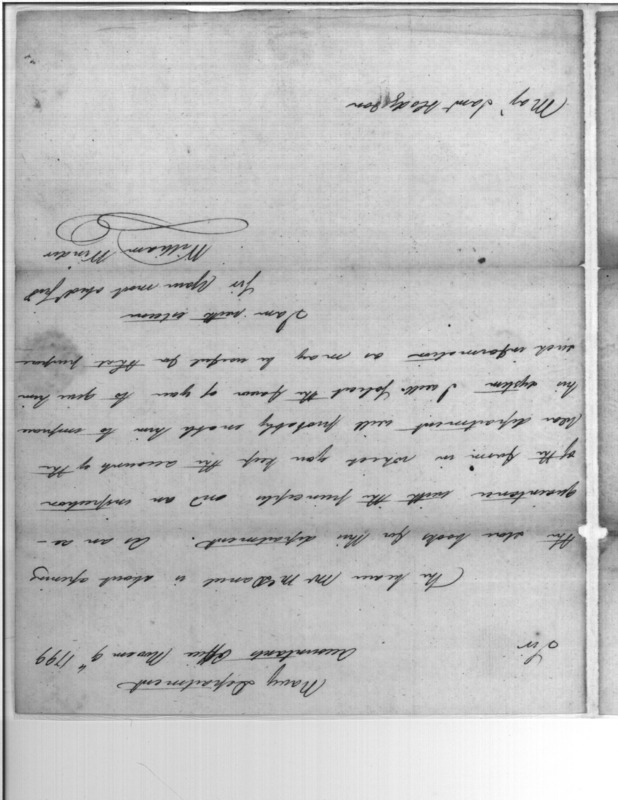 Navy Department
Accountants Office Novem 9th 1799
Sir
The bearer Mr McDaniel is about opening
the store books for this department. As an ac-
quaintance with the principles and an inspection
of the form in which you keep the accounts of the
War department will probably enable him to improve
his system I will solicit the favor of you to give him
such information as may be useful for that purpose
I am with esteem
Sir Your most obedt servt
William Winder
Maj Saml Hodgdon